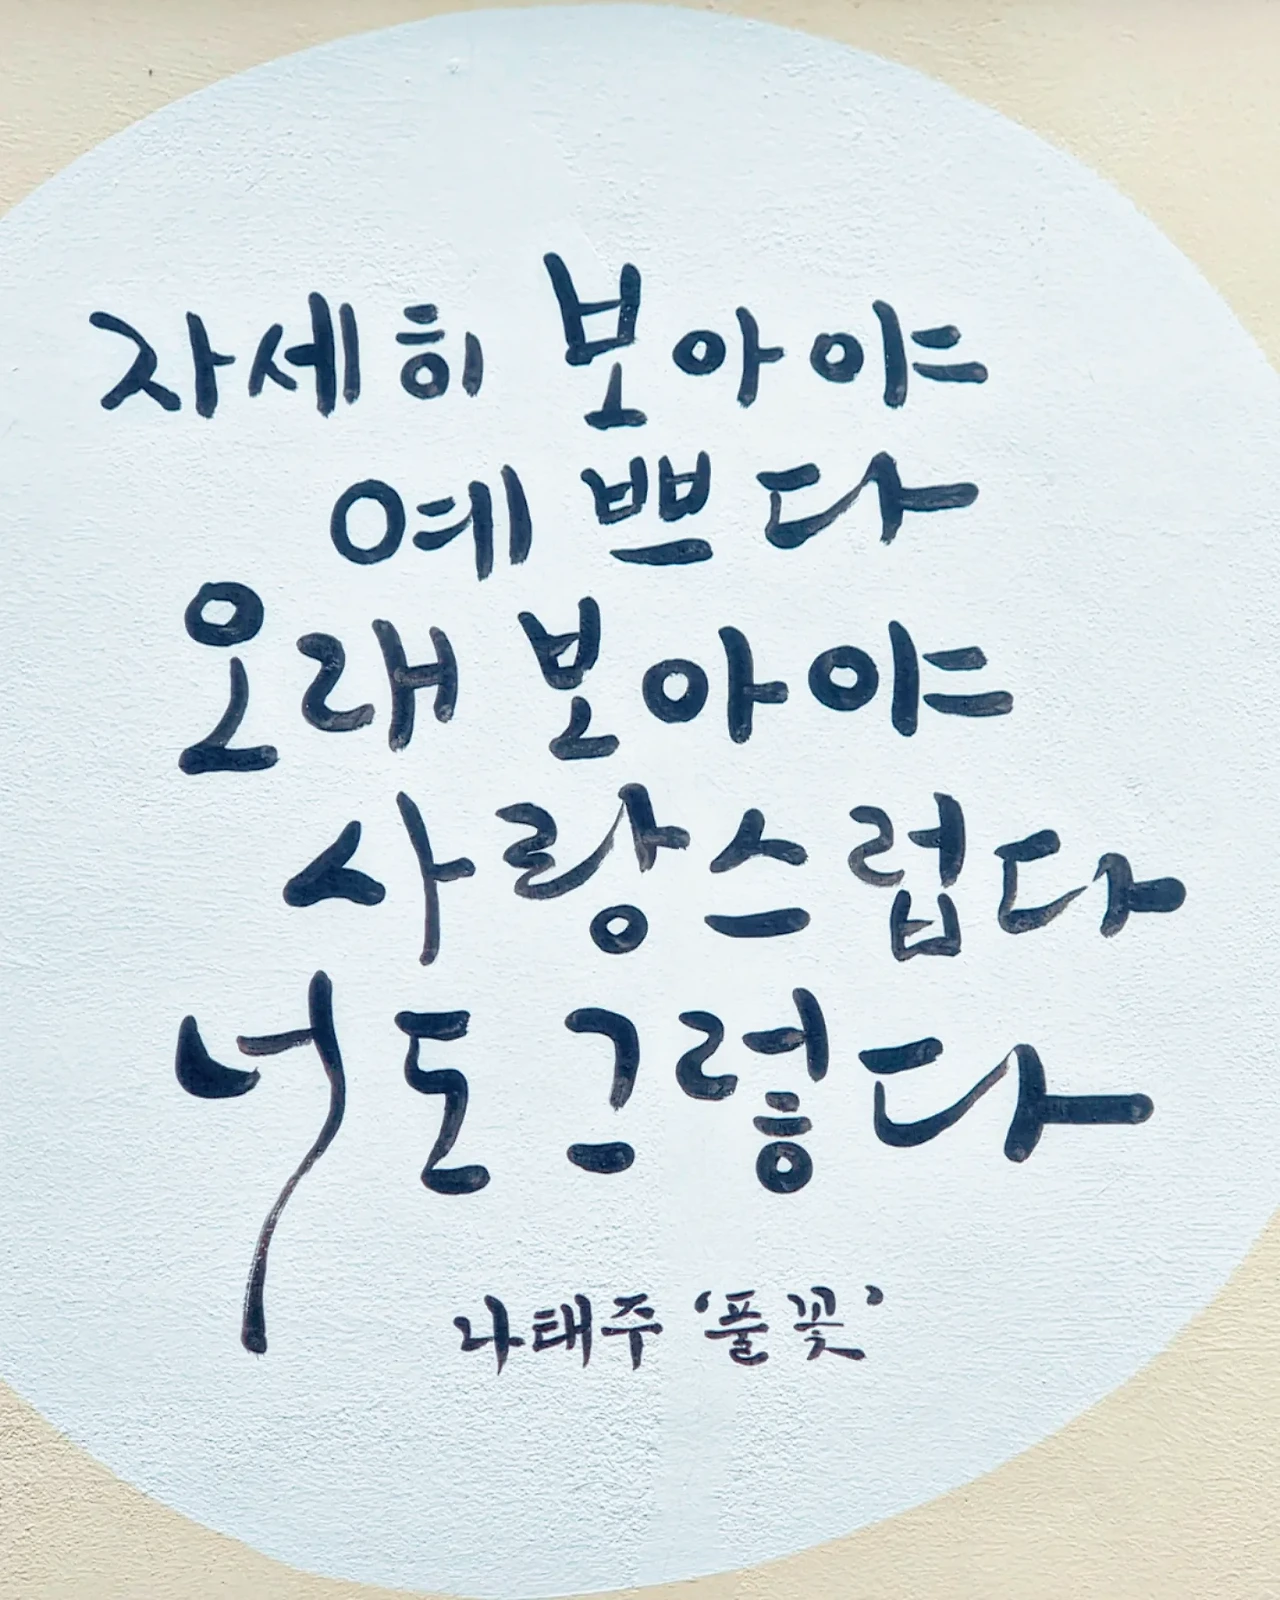 자세히 보아야
예쁘다
오래 보아야
사랑스럽다
너도 그렇다
나태주 '풀꽃'